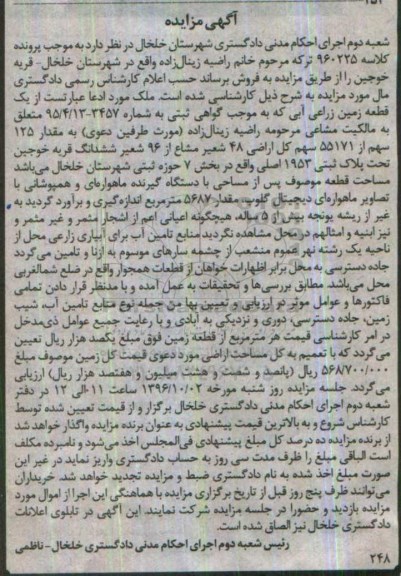 آگهی مزایده
شعبه دوم اجرای احکام مدنی دادگستری شهرستان خلخال در نظر دارد به موجب پرونده
کلاسه ۹۶۰۲۲۵ ترکه مرحوم خانم راضیه زینال‌زاده واقع در شهرستان خلخال- قریه
خوجین را از طریق مزایده به فروش برساند حسب اعلام کارشناس رسمی دادگستری
مال مورد مزایده به شرح ذیل کارشناسی شده است. ملک مورد ادعا عبارتست از یک
قطعه زمین زراعی آبی که به موجب گواهی ثبتی به شماره ۹۵/۴/۱۳-۳۴۵۷ متعلق
به مالکیت مشاعی مرحومه راضیه زینال‌زاده (مورث طرفین دعوی) به مقدار ۱۲۵
سهم از ۵۵۱۷۱ سهم کل اراضی ۴۸ شعیر مشاع از ۹۶ شعیر ششدانگ قریه خوجین
تحت پلاک ثبتی ۱۹۵۳ اصلی واقع در بخش ۷ حوزه ثبتی شهرستان خلخال می‌باشد
مساحت قطعه موصوف پس از مساحی با دستگاه گیرنده ماهواره‌ای و همپوشانی با
تصاویر ماهواره‌ای دیجیتال گلوب مقدار ۵۶۸۷ مترمربع اندازه‌گیری و برآورد گردید به
غیر از ریشه یونجه بیش از ۵ ساله، هیچگونه اعیانی اعم از اشجار مثمر و غیر مثمر و
نیز ابنیه و امثالهم در محل مشاهده نگردید منابع تامین آب برای آبیاری زراعی محل از
ناحیه یک رشته نهر عموم منشعب از چشمه سارهای موسوم به ازنا و تامین می‌گردد
جاده دسترسی به محل برابر اظهارات خواهان از قطعات همجوار واقع در ضلع شمالغربی
محل می‌باشد. مطابق بررسی‌ها و تحقیقات به عمل آمده و با مدنظر قرار دادن تمامی
فاکتورها و عوامل موثر در ارزیابی و تعیین بها من جمله نوع منابع تامین آب، شیب
زمین، جاده دسترسی، دوری و نزدیکی به آبادی و با رعایت جمیع عوامل ذی‌مدخل
در امر کارشناسی قیمت هر مترمربع از قطعه زمین فوق مبلغ یکصد هزار ریال تعیین
می‌گردد که با تعمیم به کل مساحت اراضی مورد دعوی قیمت کل زمین موصوف مبلغ
۵۶۸۷۰۰/۰۰۰ ریال (پانصد و شصت و هشت میلیون و هفتصد هزار ریال) ارزیابی
می‌گردد. جلسه مزایده روز شنبه مورخه ۱۳۹۶/۱۰/۰۲ ساعت ۱۱ الی ۱۲ در دفتر
شعبه دوم اجرای احکام مدنی دادگستری خلخال برگزار و از قیمت تعیین شده توسط
کارشناس شروع و به بالاترین قیمت پیشنهادی به عنوان برنده مزایده واگذار خواهد شد
از برنده مزایده ده درصد کل مبلغ پیشنهادی فی‌المجلس اخذ می‌شود و نامبرده مکلف
است الباقی مبلغ را ظرف مدت سی روز به حساب دادگستری واریز نماید در غیر این
صورت مبلغ اخذ شده به نام دادگستری ضبط و مزایده تجدید خواهد شد. خریداران
می‌توانند ظرف پنج روز قبل از تاریخ برگزاری مزایده با هماهنگی این اجرا از اموال مورد
مزایده بازدید و حضورا در جلسه مزایده شرکت نمایند. این آگهی در تابلوی اعلانات
دادگستری خلخال نیز الصاق شده است.
رئیس شعبه دوم اجرای احکام مدنی دادگستری خلخال- ناظمی
۲۴۸